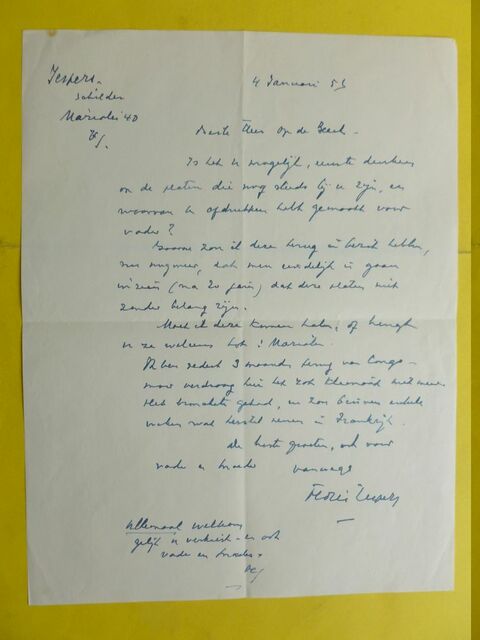 Jespers.
schilder
Marialei 40
4 Januari 55
Beste Heer Op de Beeck.
Is het u mogelijk, eens te denken
on de platen die nog steeds bij u zijn, en
waarvan u afdrukken hebt gemaakt voor
vader?
Gaarne zou ik deze terug in bezit hebben,
nu nogmeer, dat men eindelijk is gaan
inzien (na 20 jaar) dat deze platen niet
zonder belang zijn.
Moet ik deze komen halen, of brengt
u ze weleens tot: Mariaлei.
Ik ben sedert 3 maanden terug van Congo.
maar verdraag hier het klimaat niet meer.
Heb bronchite gehad, en zou enkele
weken wat herstel nemen in Frankrijk.
De beste groeten, ook voor
vader en moeder vanwege
Floris Jespers
Allemaal welkom
gelijk u verkiest - en ook
vader en moeder.